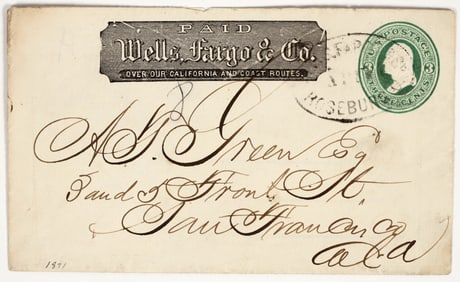 PAID
Wells, Fargo & Co.
OVER OUR CALIFORNIA AND COAST ROUTES.
U.S. POSTAGE
THREE CENTS
ROSEBUR
A. S. Green Esq
3 and 5 Front St.
San Francisco
Cala
1871